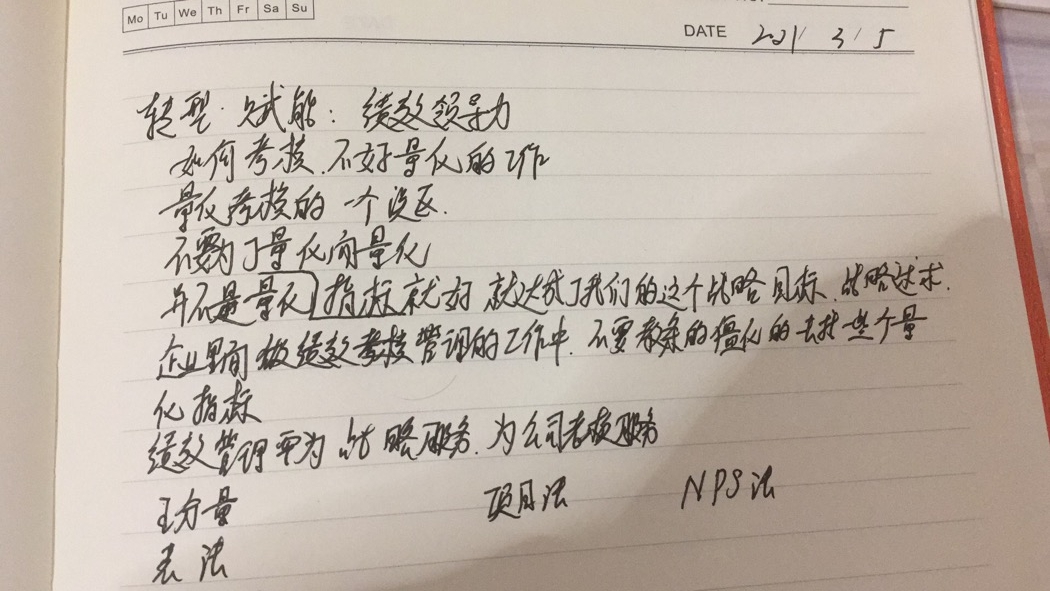 Mo Tu We Th Fr Sa Su
DATE 2021 3 5
转型·赋能：绩效领导力
如何考核.不好量化的工作
量化考核的一个误区.
不要为了量化而量化
并不是量化指标就好 就达成了我们的这个战略目标.战略诉求.
企业里面做绩效考核管理的工作中.不要教条的僵化的去找些个量
化指标
绩效管理要为战略服务.为公司考核服务
分量 项目法 NPS法
表法